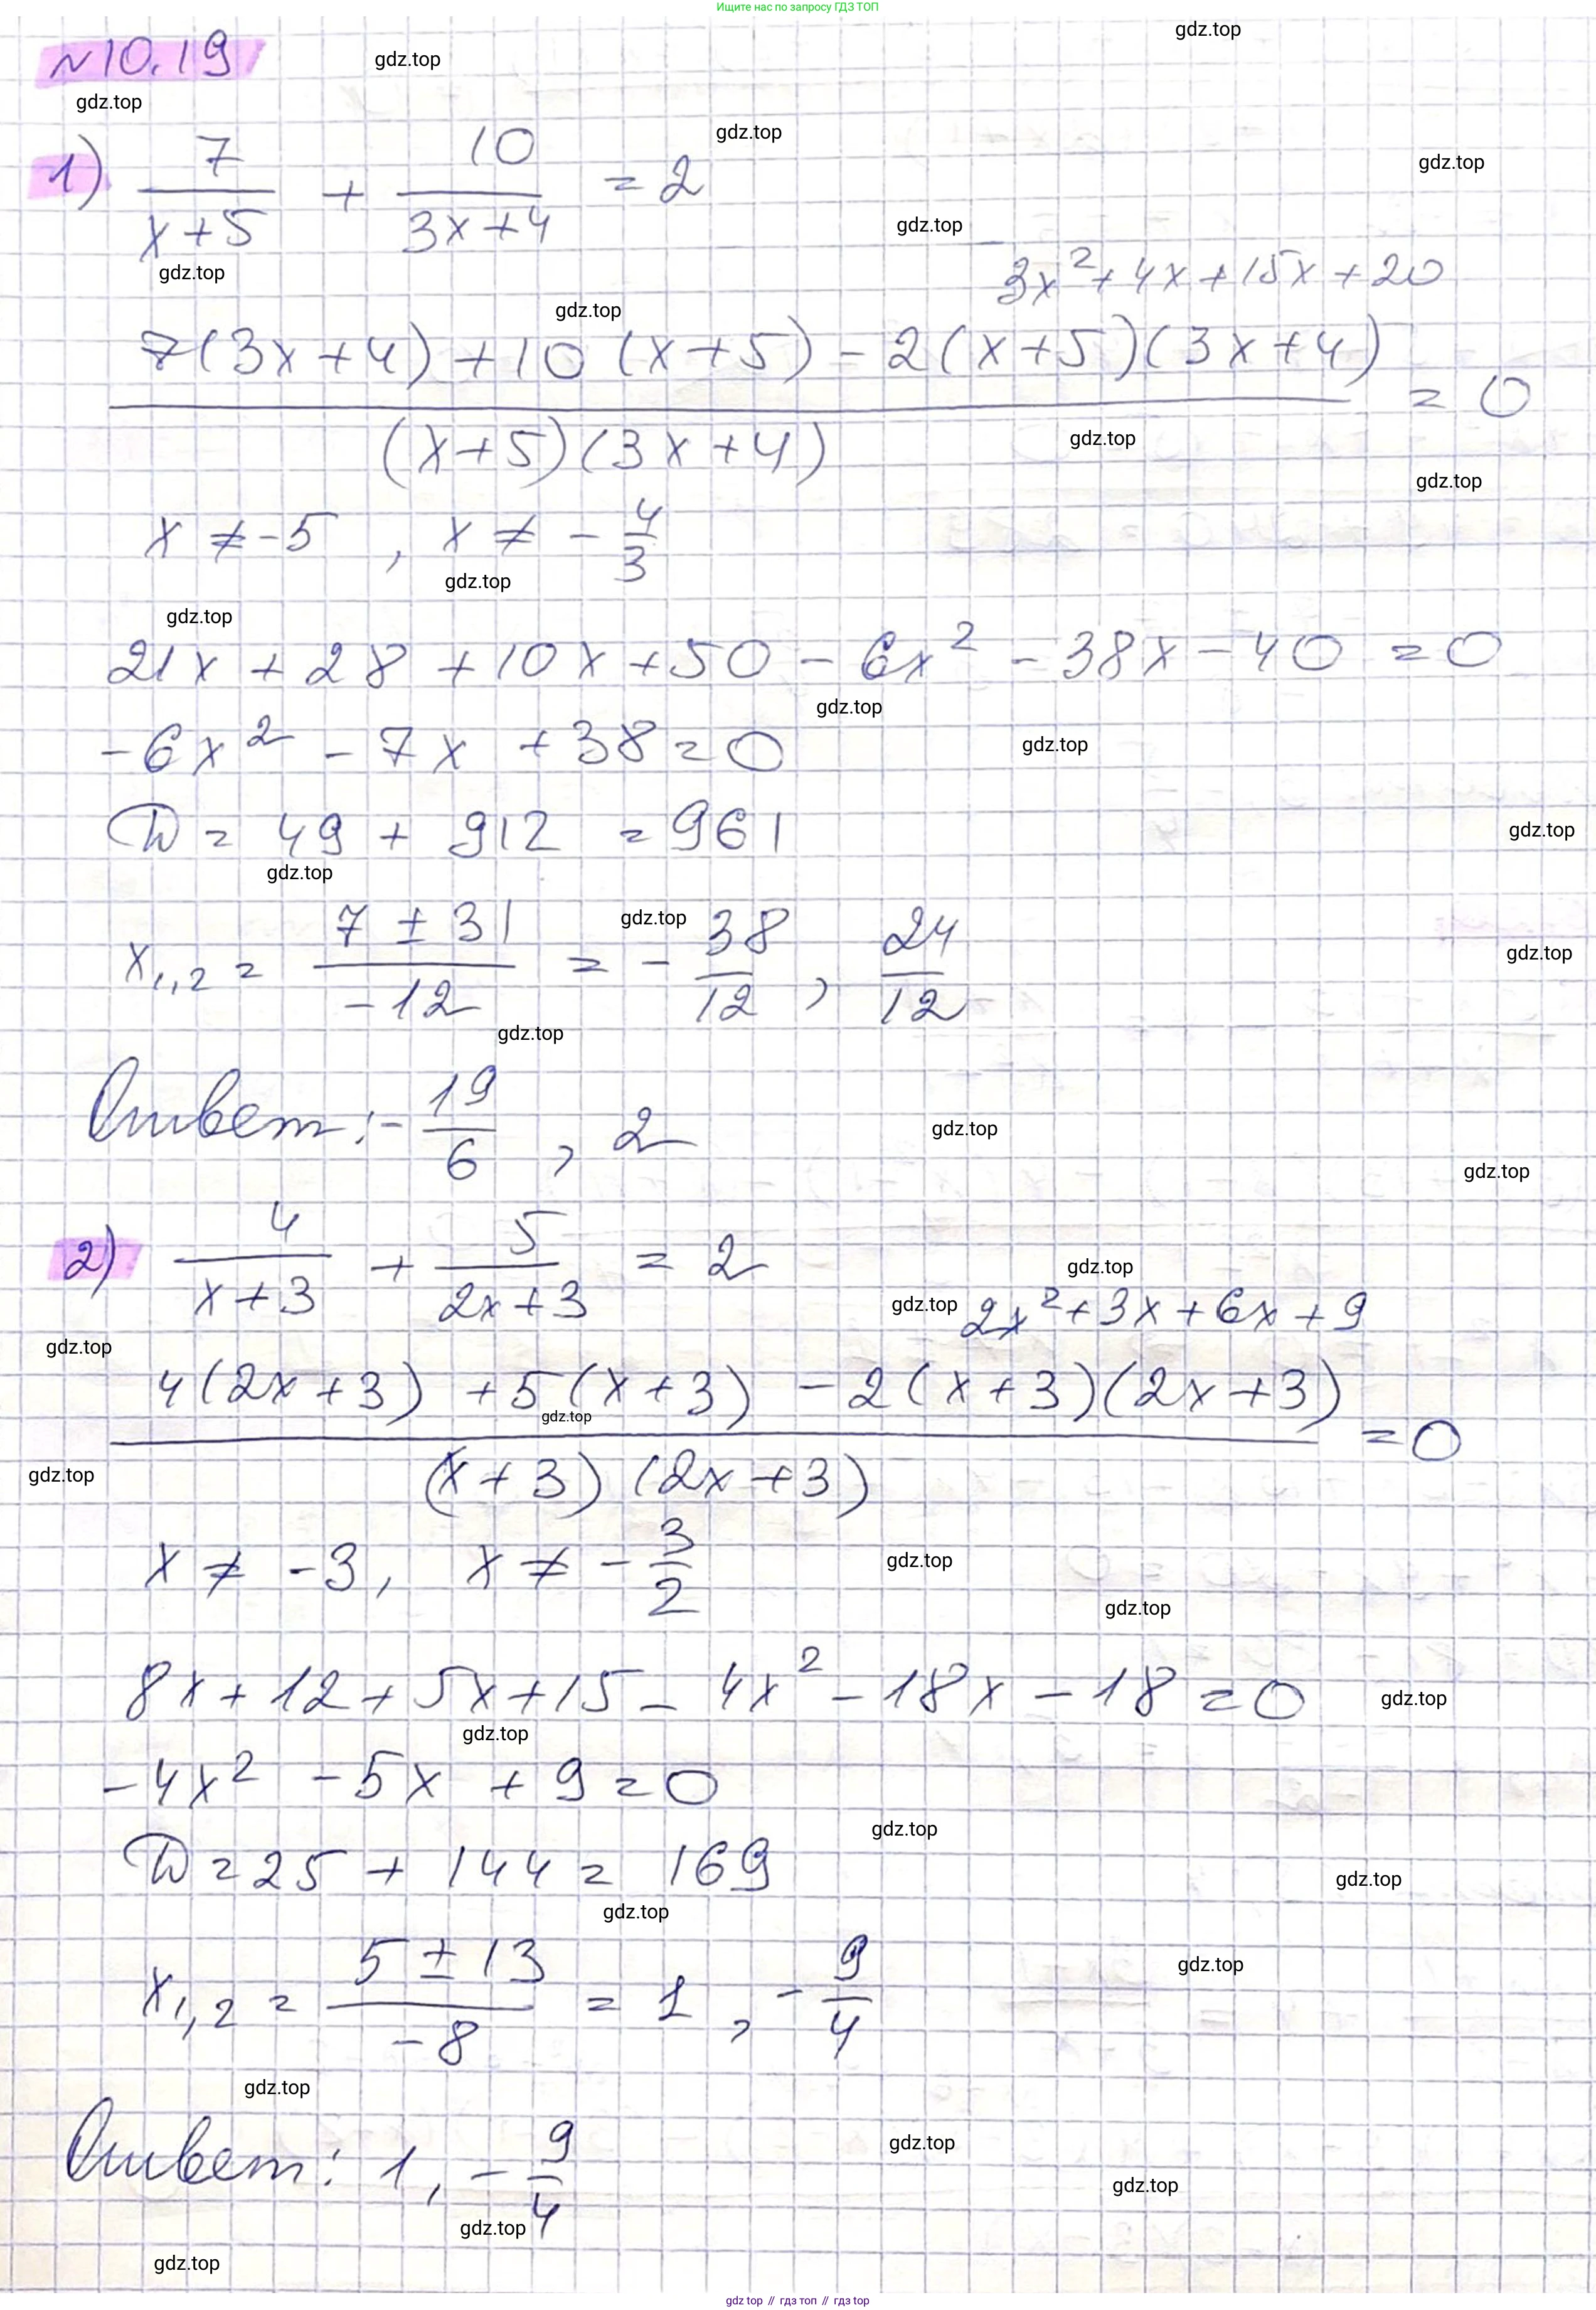 Ищите нас по запросу ГДЗ ТОП
gdz.top
№10.19
gdz.top
gdz.top
gdz.top
1) 7/(x+5) + 10/(3x+4) = 2
gdz.top
gdz.top
gdz.top
gdz.top
3x² + 4x + 15x + 20
(7(3x+4) + 10(x+5) - 2(x+5)(3x+4))/((x+5)(3x+4)) = 0
gdz.top
gdz.top
x ≠ -5, x ≠ -4/3
gdz.top
gdz.top
21x + 28 + 10x + 50 - 6x² - 38x - 40 = 0
gdz.top
-6x² - 7x + 38 = 0
gdz.top
D = 49 + 912 = 961
gdz.top
gdz.top
gdz.top
x₁,₂ = (7 ± 31)/(-12) = -38/12, 24/12
gdz.top
gdz.top
Ответ: -19/6, 2
gdz.top
gdz.top
2) 4/(x+3) + 5/(2x+3) = 2
gdz.top
gdz.top
2x² + 3x + 6x + 9
gdz.top
(4(2x+3) + 5(x+3) - 2(x+3)(2x+3))/((x+3)(2x+3)) = 0
gdz.top
gdz.top
x ≠ -3, x ≠ -3/2
gdz.top
gdz.top
8x + 12 + 5x + 15 - 4x² - 18x - 18 = 0
gdz.top
gdz.top
-4x² - 5x + 9 = 0
gdz.top
D = 25 + 144 = 169
gdz.top
gdz.top
x₁,₂ = (5 ± 13)/(-8) = 1, -9/4
gdz.top
gdz.top
Ответ: 1, -9/4
gdz.top
gdz.top
gdz.top
gdz.top
gdz top // гдз топ // гдз top